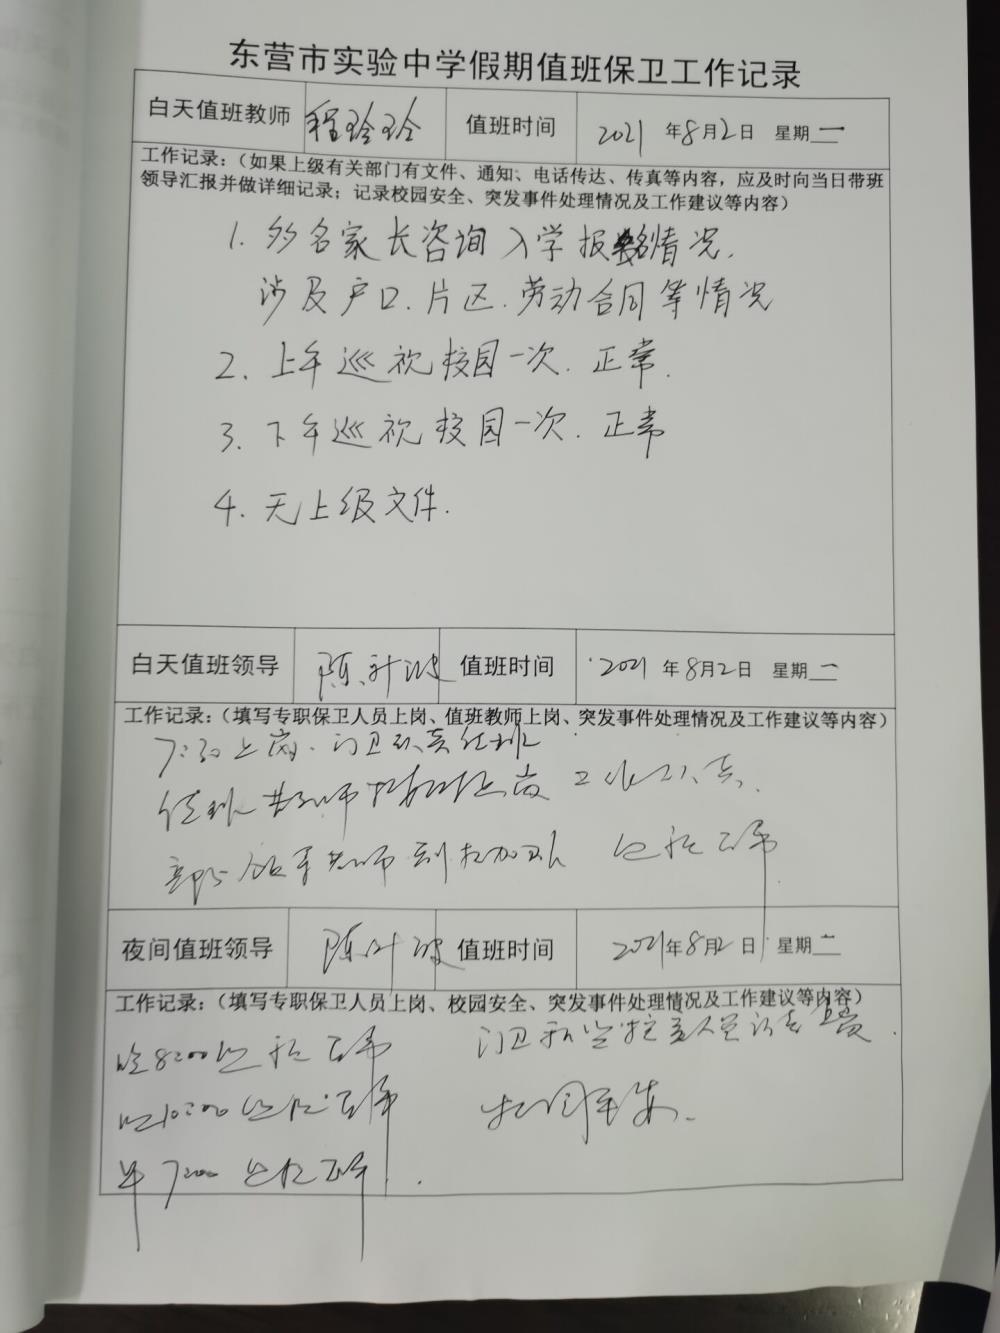 东营市实验中学假期值班保卫工作记录
白天值班教师 程玲玲 值班时间 2021年8月2日 星期一
工作记录：（如果上级有关部门有文件、通知、电话传达、传真等内容，应及时向当日带班
领导汇报并做详细记录；记录校园安全、突发事件处理情况及工作建议等内容）
1. 多名家长咨询入学报名情况.
涉及户口.片区.劳动合同等情况
2. 上午巡视校园一次.正常.
3. 下午巡视校园一次.正常
4. 无上级文件.
白天值班领导 陈 值班时间 2021年8月2日 星期一
工作记录：（填写专职保卫人员上岗、值班教师上岗、突发事件处理情况及工作建议等内容）
7:30上岗.门卫认真值班
值班教师按时上岗 工作认真.
老师到校加班 巡视正常
夜间值班领导 陈 值班时间 2021年8月2日 星期一
工作记录：（填写专职保卫人员上岗、校园安全、突发事件处理情况及工作建议等内容）
晚8:00巡视正常 门卫和监控室人员认真上岗.
晚10:00巡视正常 校园平安.
早7:00 巡视正常.